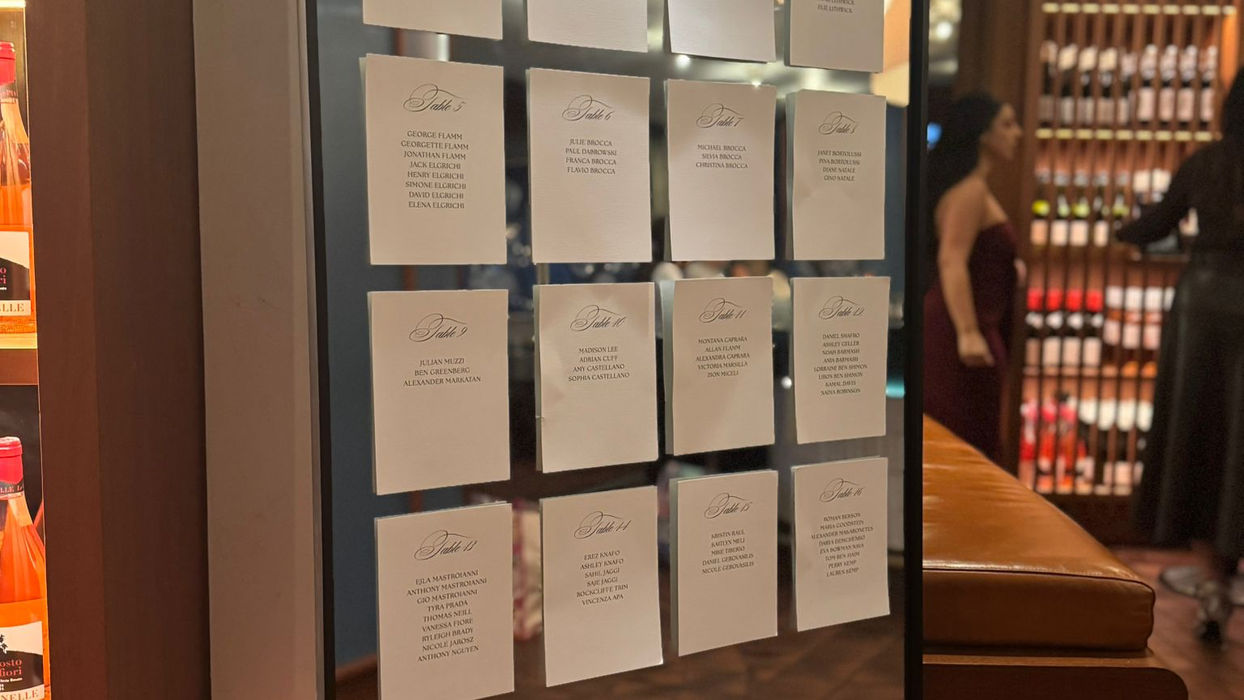 Table 5
GEORGE FLAMM
GEORGETTE FLAMM
JONATHAN FLAMM
JACK ELGRICHI
HENRY ELGRICHI
SIMONE ELGRICHI
DAVID ELGRICHI
ELENA ELGRICHI
Table 6
JULIE BROCCA
PAUL DABROWSKI
FRANCA BROCCA
FLAVIO BROCCA
Table 7
MICHAEL BROCCA
SILVIA BROCCA
CHRISTINA BROCCA
Table 8
JANET BORTOLUSSI
PINA BORTOLUSSI
DIANE NATALE
GINO NATALE
Table 9
JULIAN MUZZI
BEN GREENBERG
ALEXANDER MARKATAN
Table 10
MADISON LEE
ADRIAN CUFF
AMY CASTELLANO
SOPHIA CASTELLANO
Table 11
MONTANA CAPRARA
ALLAN FLAMM
ALEXANDRA CAPRARA
VICTORIA MARSILLA
ZION MICELI
Table 12
DANIEL SHAFRO
ASHLEY GELLER
NOAH BARMASH
ANIA BARMASH
LORRAINE BEN SHIMON
LIROS BEN SHIMON
KAMAL DAVIS
NADIA ROBINSON
Table 13
EJLA MASTROIANNI
ANTHONY MASTROIANNI
GIO MASTROIANNI
TYRA PRADA
THOMAS NEILL
VANESSA FIORE
RYLEIGH BRADY
NICOLE JAROSZ
ANTHONY NGUYEN
Table 14
EREZ KNAFO
ASHLEY KNAFO
SAHIL JAGGI
SAIE JAGGI
ROCKCLIFFE TRIM
VINCENZA APA
Table 15
KRISTIN RAIL
KAITLYN MELI
MIKE TIBERIO
DANIEL GEROVASILIS
NICOLE GEROVASILIS
Table 16
ROMAN BERSON
MARIA GOODSTEIN
ALEXANDER MAKARONETES
DARIA DEMCHENKO
EVA BORMAN NAVA
TOM BEN HAIM
PERRY KEMP
LAUREN KEMP